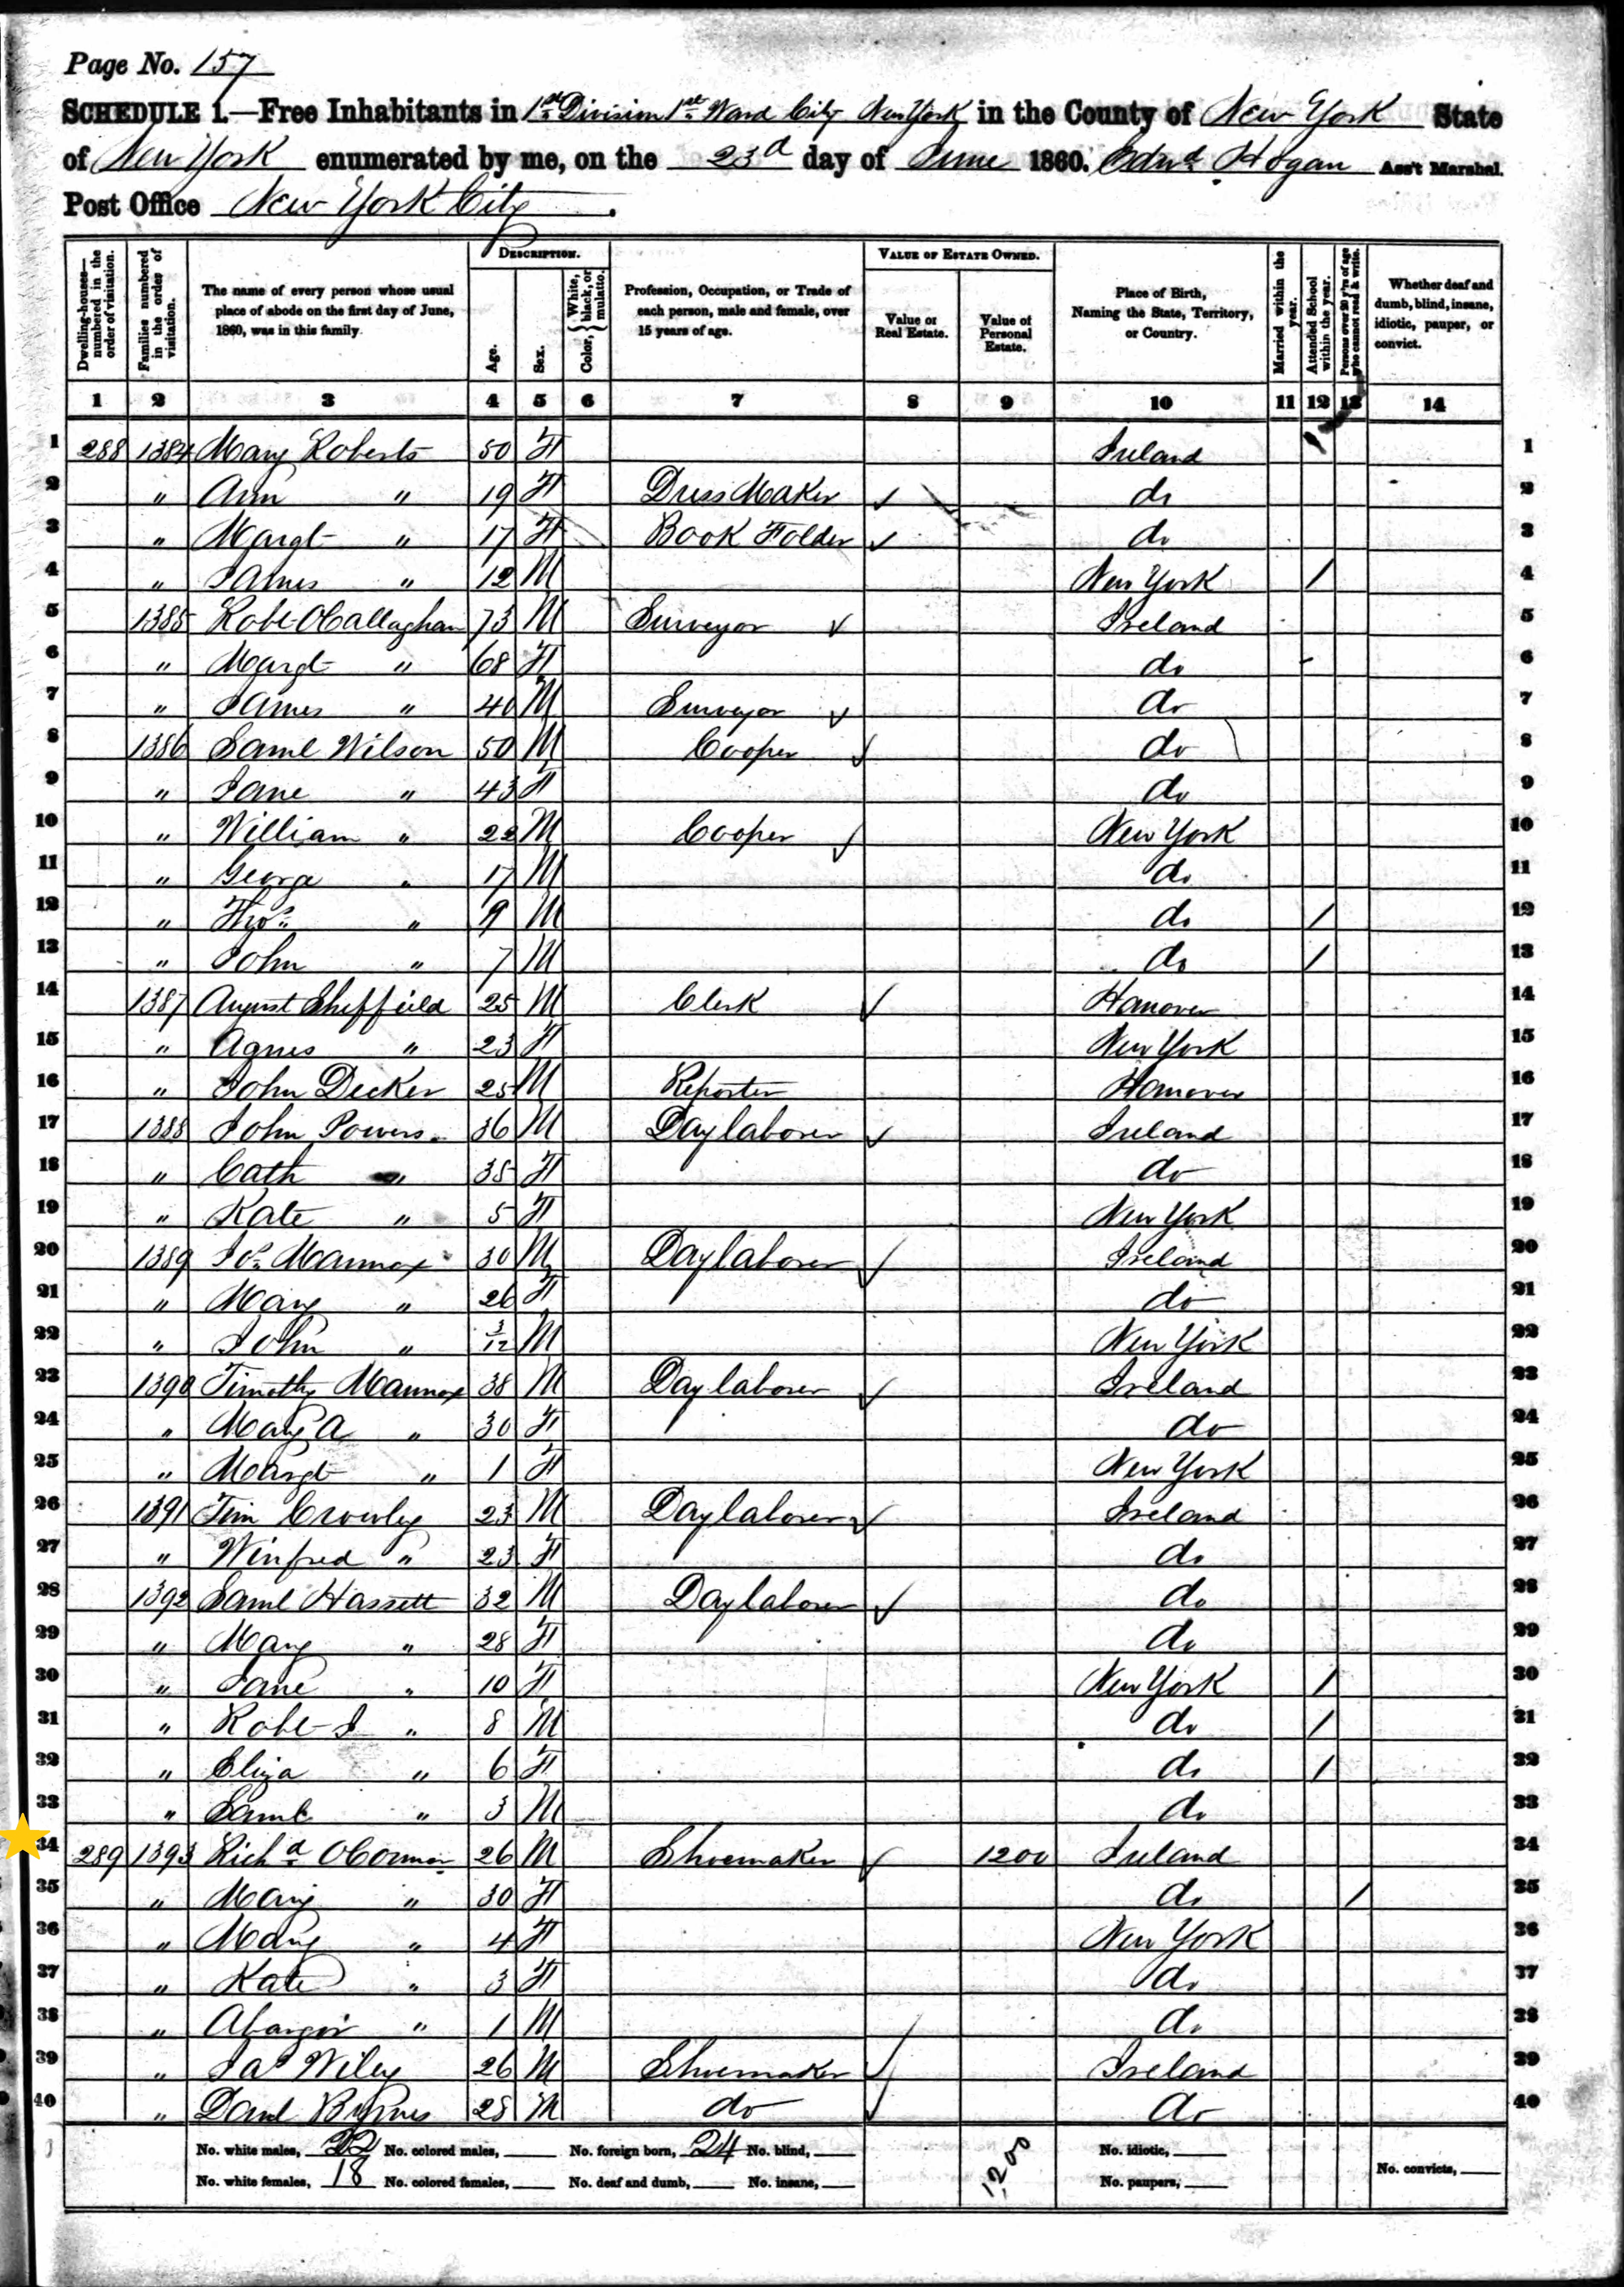 Page No. 157
SCHEDULE 1.—Free Inhabitants in 1st Division 1st Ward City New York in the County of New York State
of New York enumerated by me, on the 23d day of June 1860. Edwd Hogan Ass't Marshal.
Post Office New York City.
DESCRIPTION. VALUE OF ESTATE OWNED.
Dwelling-houses—numbered in the order of visitation. Families numbered in the order of visitation. The name of every person whose usual place of abode on the first day of June, 1860, was in this family. Age. Sex. Color, White, black, or mulatto. Profession, Occupation, or Trade of each person, male and female, over 15 years of age. Value of Real Estate. Value of Personal Estate. Place of Birth, Naming the State, Territory, or Country. Married within the year. Attended School within the year. Persons over 20 y'rs of age who cannot read & write. Whether deaf and dumb, blind, insane, idiotic, pauper, or convict.
1 2 3 4 5 6 7 8 9 10 11 12 13 14
1 288 1384 Mary Roberts 50 F Ireland 1
2 " Ann " 19 F Dress Maker do 2
3 " Margt " 17 F Book Folder do 3
4 " James " 12 M New York / 4
5 1385 Robt OCallaghan 73 M Surveyor Ireland 5
6 " Margt " 68 F do 6
7 " James " 40 M Surveyor do 7
8 1386 Saml Wilson 50 M Cooper do 8
9 " Jane " 43 F do 9
10 " William " 22 M Cooper New York 10
11 " George " 17 M do 11
12 " Thos " 9 M do / 12
13 " John " 7 M do / 13
14 1387 August Sheffield 25 M Clerk Hanover 14
15 " Agnes " 23 F New York 15
16 " John Decker 25 M Reporter Hanover 16
17 1388 John Powers 36 M Day laborer Ireland 17
18 " Cath " 35 F do 18
19 " Kate " 5 F New York 19
20 1389 Jos Mannox 30 M Day laborer Ireland 20
21 " Mary " 26 F do 21
22 " John " 3/12 M New York 22
23 1390 Timothy Mannox 38 M Day laborer Ireland 23
24 " Mary A " 30 F do 24
25 " Margt " 1 F New York 25
26 1391 Tim Crowley 23 M Day laborer Ireland 26
27 " Winfred " 23 F do 27
28 1392 Saml Hassett 32 M Day laborer do 28
29 " Mary " 28 F do 29
30 " Jane " 10 F New York / 30
31 " Robt J " 8 M do / 31
32 " Eliza " 6 F do / 32
33 " Saml " 3 M do 33
34 289 1393 Richd OConnor 26 M Shoemaker 1200 Ireland 34
35 " Mary " 30 F do / 35
36 " Mary " 4 F New York 36
37 " Kate " 3 F do 37
38 " " 1 M do 38
39 " Jas Wiley 26 M Shoemaker Ireland 39
40 " Danl Byrnes 28 M do do 40
No. white males, 22 No. colored males, No. foreign born, 24 No. blind, 1200 No. idiotic,
No. white females, 18 No. colored females, No. deaf and dumb, No. insane, No. paupers, No. convicts,